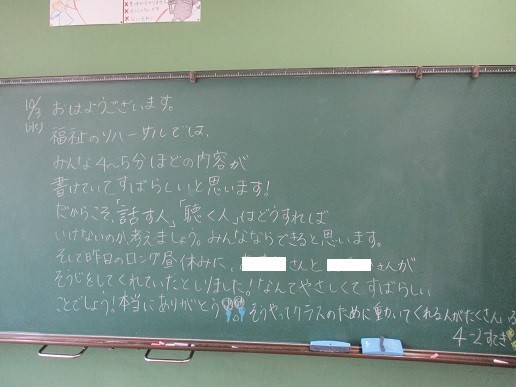 10/3
(火)
おはようございます。
福祉のリハーサルでは、
みんな4〜5分ほどの内容が
書けていてすばらしいと思います!
だからこそ、「話す人」「聴く人」はどうすれば
いけないのか、考えましょう。みんなならできると思います。
そして昨日のロング昼休みに、さんとさんが
そうじをしてくれていたとしりました!なんてやさしくてすばらしい
ことでしょう!本当にありがとう そうやってクラスのために動いてくれる人がたくさんいる
4-2すてき